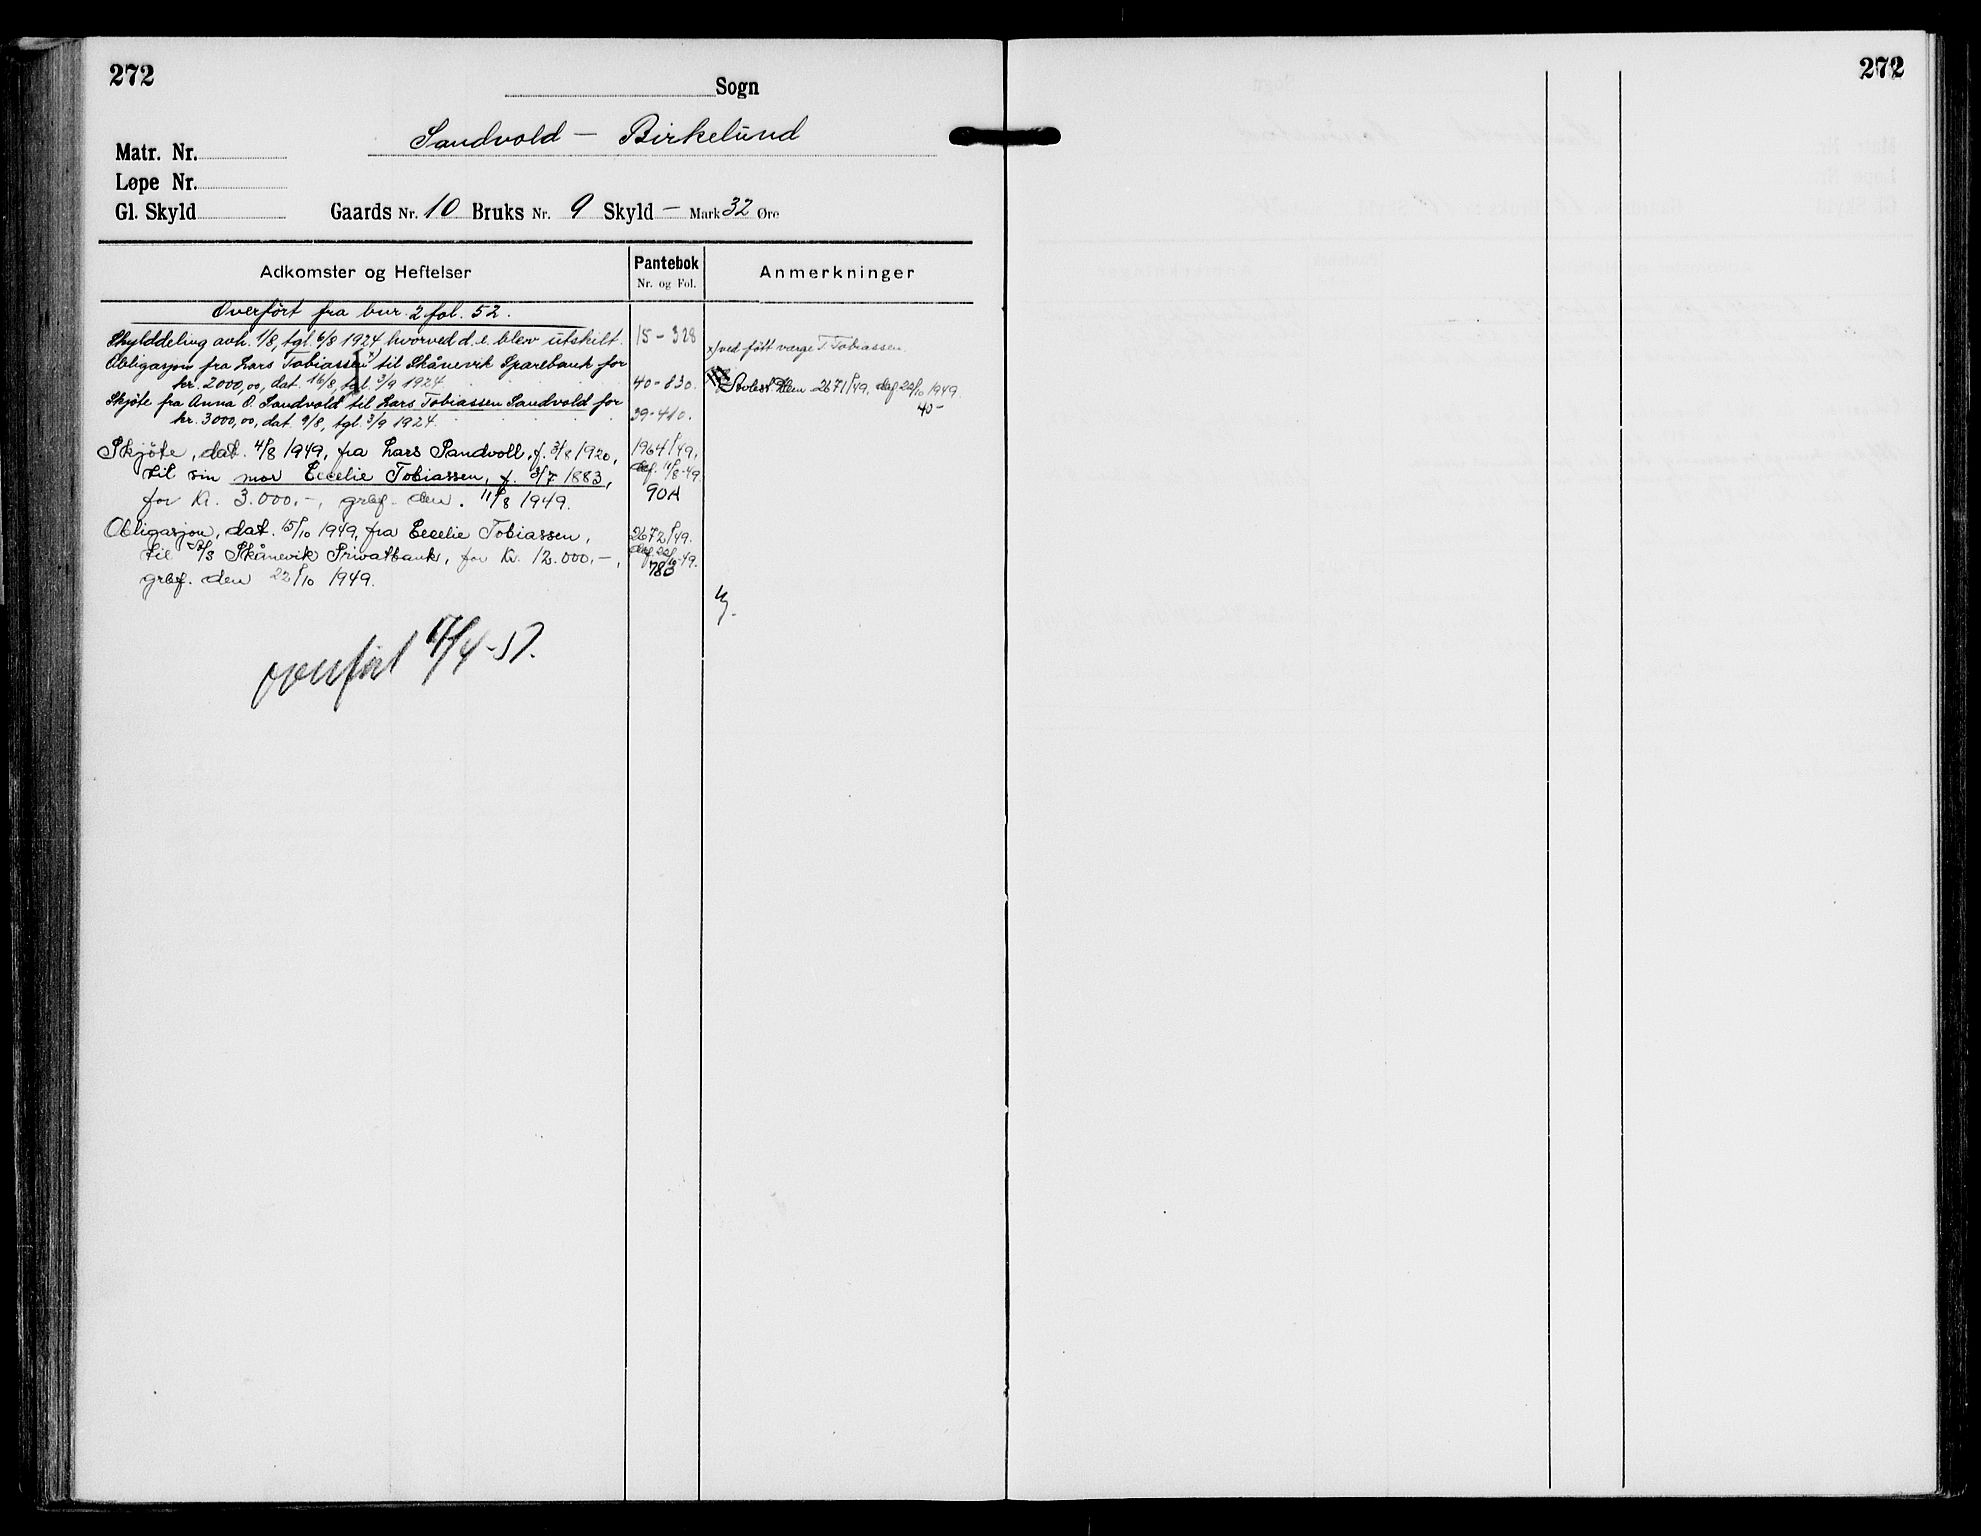 272
Sogn
Sandvold – Birkelund
Matr. Nr.
Løpe Nr.
Gl. Skyld
Gaards Nr. 10 Bruks Nr. 9 Skyld – Mark 32 Øre
Adkomster og Heftelser
Pantebok
Nr. og Fol.
Anmerkninger
Overført fra bur. 2 fol. 52.
Skylddeling avh. 1/8, tgl. 6/8 1924 hvorved d.e. blev utskilt. 15 – 328
Obligasjon fra Lars Tobiassen x) til Skånevik Sparebank for
kr. 2000,00, dat. 16/8, tgl. 3/9 1924 40 – 830.
x) ved født værge T Tobiassen.
Avlest 2671/49, 22/10 1949.
40 –
Skjøte fra Anna O. Sandvold til Lars Tobiassen Sandvold for
kr. 3000,00, dat. 9/8, tgl. 3/9 1924. 39 – 410.
Skjøte, dat. 4/8 1949, fra Lars Sandvoll, f. 3/8 1920, 1964/49,
til sin mor Cecelie Tobiassen, f. 3/7 1883, daf. 11/8-49.
for kr. 3.000.–, grbf. den. 11/8 1949. 90A
Obligasjon, dat. 15/10 1949, fra Cecelie Tobiassen, 2672/49.
til A/S Skånevik Privatbank, for kr. 12.000.–, daf. 22/10-49.
grbf. den 22/10 1949. 783
overført 17/4-57.
272